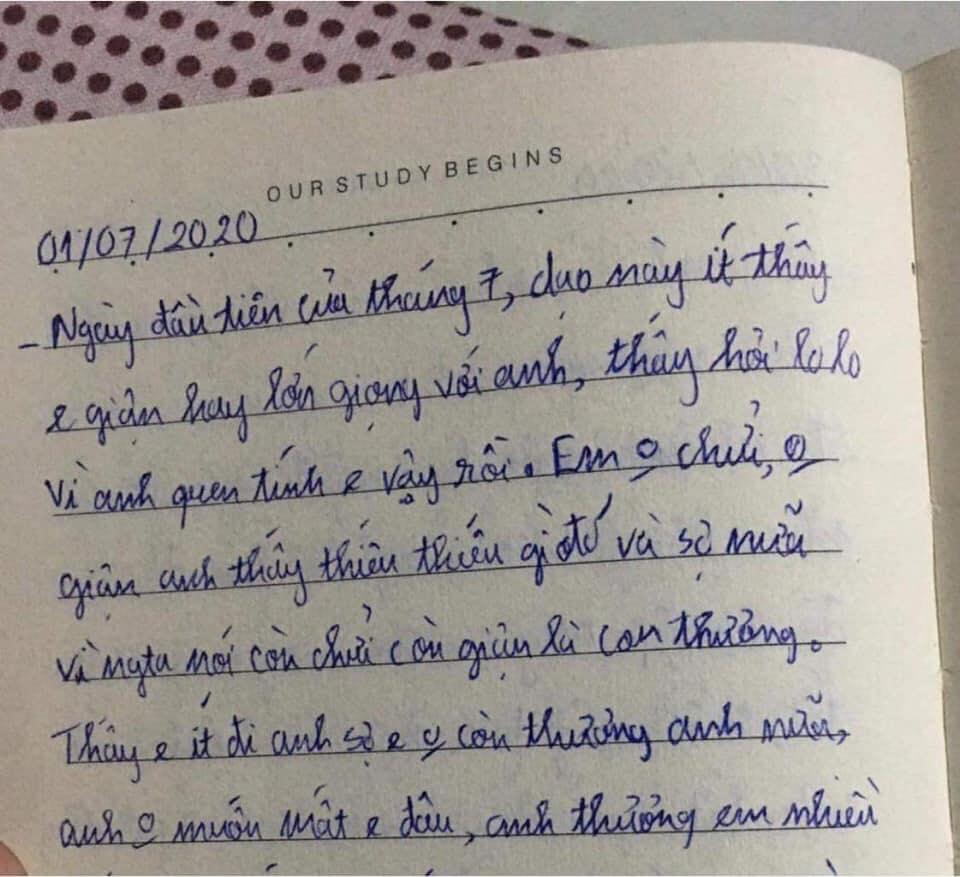 OUR STUDY BEGINS
01/07/2020
- Ngày đầu tiên của tháng 7, dạo này ít thấy
e giận hay lớn giọng với anh, thấy hơi lo lo
vì anh quen tính e vậy rồi. Em o chửi, o
giận anh thấy thiếu thiếu gì đó và sợ nữa
vì ngta nói còn chửi còn giận là còn thương.
Thấy e ít đi anh sợ e o còn thương anh nữa,
anh o muốn mất e đâu, anh thương em nhiều